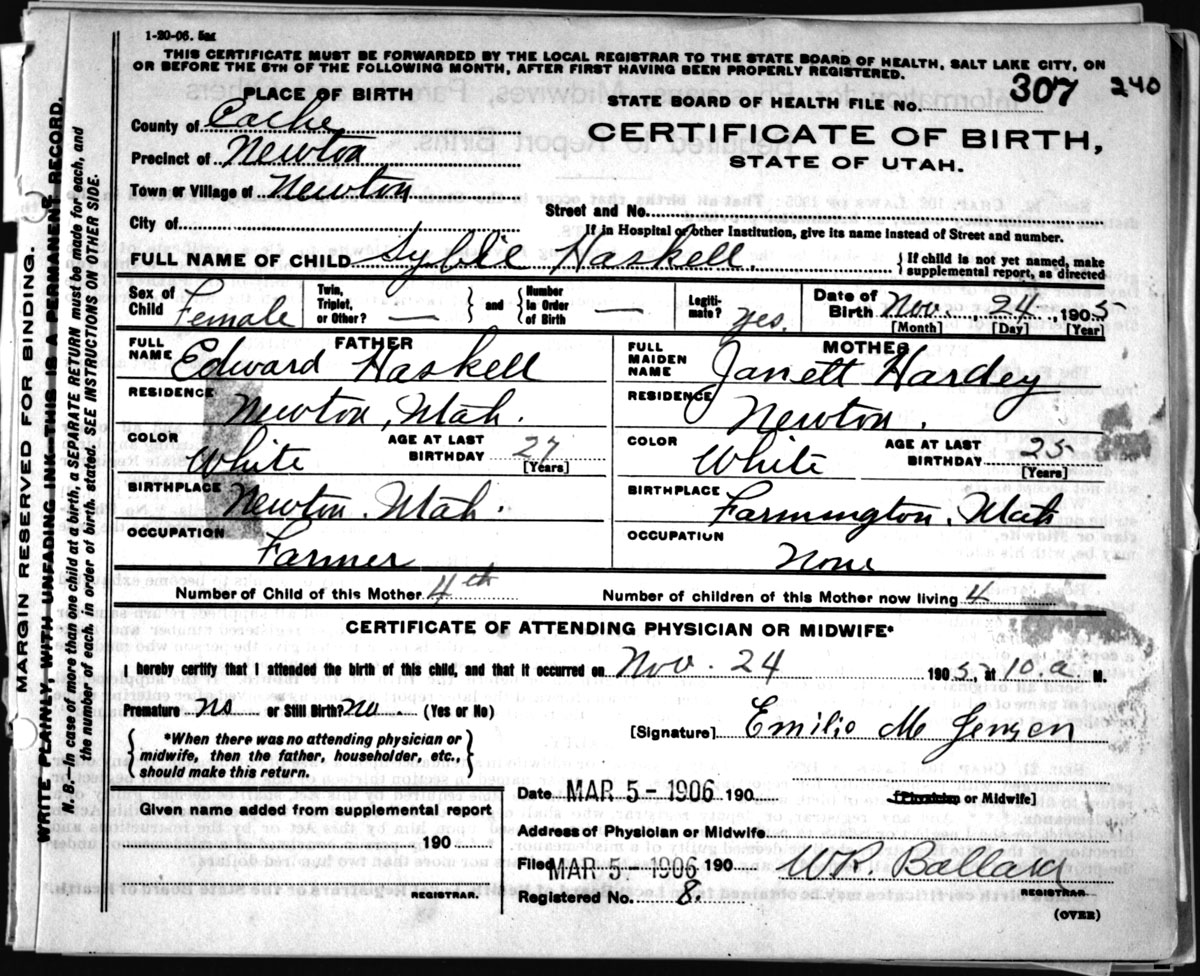 1-20-06. 5m
THIS CERTIFICATE MUST BE FORWARDED BY THE LOCAL REGISTRAR TO THE STATE BOARD OF HEALTH, SALT LAKE CITY, ON
OR BEFORE THE 5TH OF THE FOLLOWING MONTH, AFTER FIRST HAVING BEEN PROPERLY REGISTERED.
PLACE OF BIRTH
STATE BOARD OF HEALTH FILE NO. 307 240
County of Cache
CERTIFICATE OF BIRTH,
Precinct of Newton
STATE OF UTAH.
Town or Village of Newton
Street and No.
City of
If in Hospital or other Institution, give its name instead of Street and number.
FULL NAME OF CHILD Syblie Haskell. {If child is not yet named, make
supplemental report, as directed
Sex of Child Female
Twin, Triplet, or Other? — } and { Number in Order of Birth —
Legitimate? yes.
Date of Birth Nov. 24, 1905
[Month] [Day] [Year]
FATHER
FULL NAME Edward Haskell
RESIDENCE Newton, Utah.
COLOR White AGE AT LAST BIRTHDAY 27 [Years]
BIRTHPLACE Newton. Utah.
OCCUPATION Farmer
MOTHER
FULL MAIDEN NAME Janett Hardey
RESIDENCE Newton.
COLOR White AGE AT LAST BIRTHDAY 25 [Years]
BIRTHPLACE Farmington, Utah
OCCUPATION None
Number of Child of this Mother 4th Number of children of this Mother now living 4
CERTIFICATE OF ATTENDING PHYSICIAN OR MIDWIFE*
I hereby certify that I attended the birth of this child, and that it occurred on Nov. 24 1905, at 10.a. M.
Premature no or Still Birth? no. (Yes or No)
[Signature] Emilie M Jensen
{*When there was no attending physician or
midwife, then the father, householder, etc.,
should make this return.}
Date MAR 5 - 1906 190 [Physician or Midwife]
Given name added from supplemental report
190
REGISTRAR.
Address of Physician or Midwife
Filed MAR 5 - 1906 190 W.R. Ballard
REGISTRAR.
Registered No. 8.
(OVER)
MARGIN RESERVED FOR BINDING.
WRITE PLAINLY, WITH UNFADING INK—THIS IS A PERMANENT RECORD.
N. B.—In case of more than one child at a birth, a SEPARATE RETURN must be made for each, and
the number of each, in order of birth, stated. SEE INSTRUCTIONS ON OTHER SIDE.